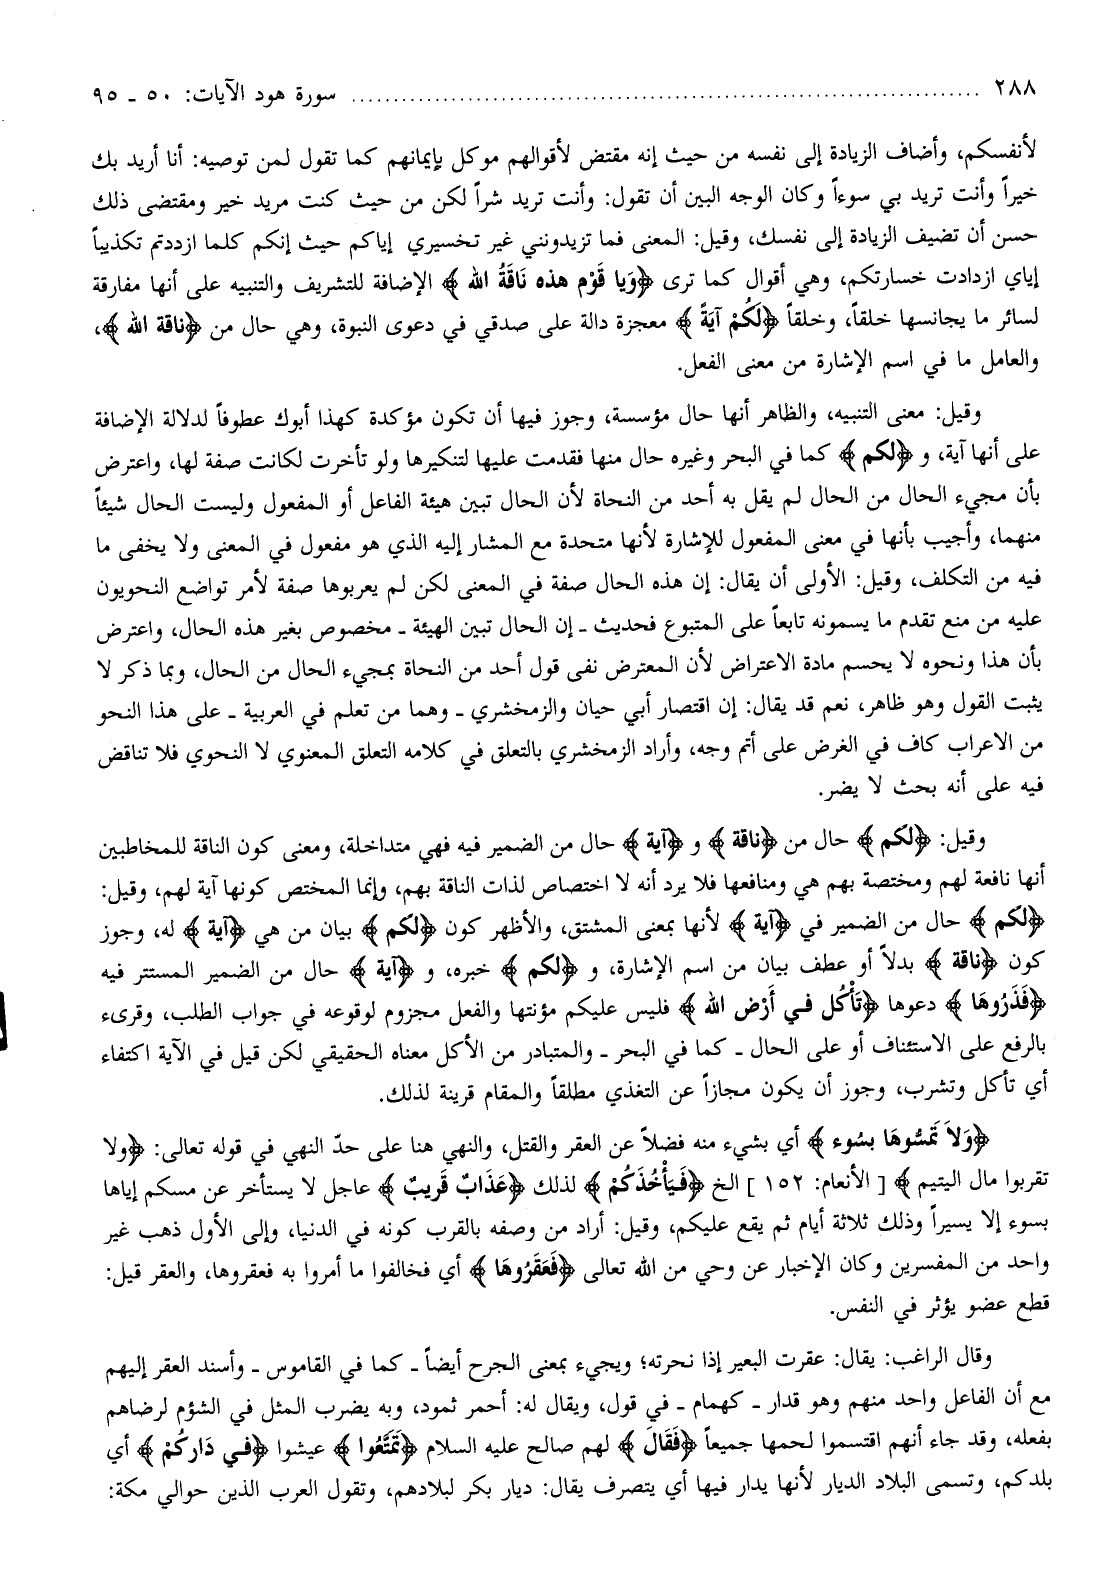 ٢٨٨ ........................................ سورة هود الآيات: ٥٠ ـ ٩٥
لأنفسكم، وأضاف الزيادة إلى نفسه من حيث إنه مقتض لأقوالهم موكل بإيمانهم كما تقول لمن توصيه: أنا أريد بك
خيراً وأنت تريد بي سوءاً وكان الوجه البين أن تقول: وأنت تريد شراً لكن من حيث كنت مريد خير ومقتضى ذلك
حسن أن تضيف الزيادة إلى نفسك، وقيل: المعنى فما تزيدونني غير تخسيري إياكم حيث إنكم كلما ازددتم تكذيباً
إياي ازدادت خسارتكم، وهي أقوال كما ترى ﴿وَيا قَوْم هذه نَاقَةُ الله﴾ الإضافة للتشريف والتنبيه على أنها مفارقة
لسائر ما يجانسها خلقاً، وخلقاً ﴿لَكُمْ آيَةً﴾ معجزة دالة على صدقي في دعوى النبوة، وهي حال من ﴿ناقة الله﴾،
والعامل ما في اسم الإشارة من معنى الفعل.
وقيل: معنى التنبيه، والظاهر أنها حال مؤسسة، وجوز فيها أن تكون مؤكدة كهذا أبوك عطوفاً لدلالة الإضافة
على أنها آية، و ﴿لكم﴾ كما في البحر وغيره حال منها فقدمت عليها لتنكيرها ولو تأخرت لكانت صفة لها، واعترض
بأن مجيء الحال من الحال لم يقل به أحد من النحاة لأن الحال تبين هيئة الفاعل أو المفعول وليست الحال شيئاً
منهما، وأجيب بأنها في معنى المفعول للإشارة لأنها متحدة مع المشار إليه الذي هو مفعول في المعنى ولا يخفى ما
فيه من التكلف، وقيل: الأولى أن يقال: إن هذه الحال صفة في المعنى لكن لم يعربوها صفة لأمر تواضع النحويون
عليه من منع تقدم ما يسمونه تابعاً على المتبوع فحديث ـ إن الحال تبين الهيئة ـ مخصوص بغير هذه الحال، واعترض
بأن هذا ونحوه لا يحسم مادة الاعتراض لأن المعترض نفى قول أحد من النحاة بمجيء الحال من الحال، وبما ذكر لا
يثبت القول وهو ظاهر، نعم قد يقال: إن اقتصار أبي حيان والزمخشري ـ وهما من تعلم في العربية ـ على هذا النحو
من الاعراب كاف في الغرض على أتم وجه، وأراد الزمخشري بالتعلق في كلامه التعلق المعنوي لا النحوي فلا تناقض
فيه على أنه بحث لا يضر.
وقيل: ﴿لكم﴾ حال من ﴿ناقة﴾ و ﴿آية﴾ حال من الضمير فيه فهي متداخلة، ومعنى كون الناقة للمخاطبين
أنها نافعة لهم ومختصة بهم هي ومنافعها فلا يرد أنه لا اختصاص لذات الناقة بهم، وإنما المختص كونها آية لهم، وقيل:
﴿لكم﴾ حال من الضمير في ﴿آية﴾ لأنها بمعنى المشتق، والأظهر كون ﴿لكم﴾ بيان من هي ﴿آية﴾ له، وجوز
كون ﴿ناقة﴾ بدلاً أو عطف بيان من اسم الإشارة، و ﴿لكم﴾ خبره، و ﴿آية﴾ حال من الضمير المستتر فيه
﴿فَذَرُوهَا﴾ دعوها ﴿تَأْكُل فـي أَرْض الله﴾ فليس عليكم مؤنتها والفعل مجزوم لوقوعه في جواب الطلب، وقرىء
بالرفع على الاستئناف أو على الحال ـ كما في البحر ـ والمتبادر من الأكل معناه الحقيقي لكن قيل في الآية اكتفاء
أي تأكل وتشرب، وجوز أن يكون مجازاً عن التغذي مطلقاً والمقام قرينة لذلك.
﴿وَلاَ تَمَسُّوهَا بسُوء﴾ أي بشيء منه فضلاً عن العقر والقتل، والنهي هنا على حدّ النهي في قوله تعالى: ﴿ولا
تقربوا مال اليتيم﴾ [الأنعام: ١٥٢] الخ ﴿فَيَأْخُذَكُمْ﴾ لذلك ﴿عَذَابٌ قَريبٌ﴾ عاجل لا يستأخر عن مسكم إياها
بسوء إلا يسيراً وذلك ثلاثة أيام ثم يقع عليكم، وقيل: أراد من وصفه بالقرب كونه في الدنيا، وإلى الأول ذهب غير
واحد من المفسرين وكان الإخبار عن وحي من الله تعالى ﴿فَعَقَرُوهَا﴾ أي فخالفوا ما أمروا به فعقروها، والعقر قيل:
قطع عضو يؤثر في النفس.
وقال الراغب: يقال: عقرت البعير إذا نحرته؛ ويجيء بمعنى الجرح أيضاً ـ كما في القاموس ـ وأسند العقر إليهم
مع أن الفاعل واحد منهم وهو قدار ـ كهمام ـ في قول، ويقال له: أحمر ثمود، وبه يضرب المثل في الشؤم لرضاهم
بفعله، وقد جاء أنهم اقتسموا لحمها جميعاً ﴿فَقَالَ﴾ لهم صالح عليه السلام ﴿تَمَتَّعُوا﴾ عيشوا ﴿فـي دَاركُمْ﴾ أي
بلدكم، وتسمى البلاد الديار لأنها يدار فيها أي يتصرف يقال: ديار بكر لبلادهم، وتقول العرب الذين حوالي مكة: